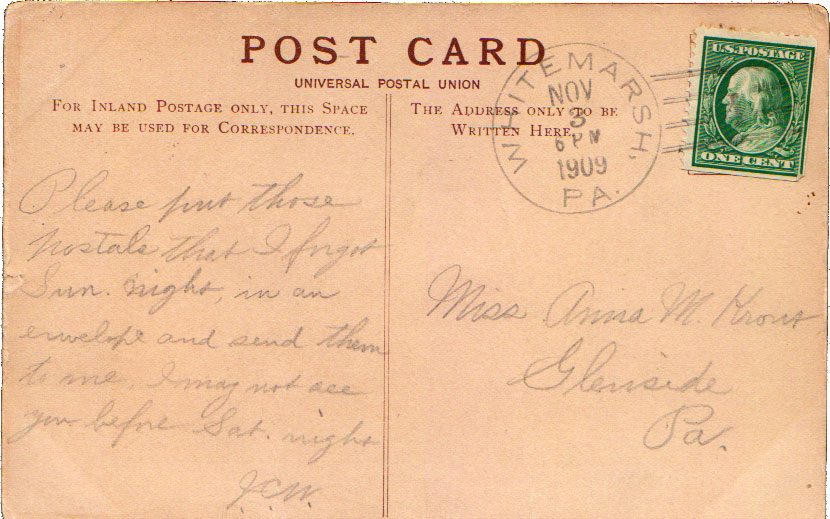 POST CARD
UNIVERSAL POSTAL UNION
FOR INLAND POSTAGE ONLY, THIS SPACE
MAY BE USED FOR CORRESPONDENCE.
THE ADDRESS ONLY TO BE
WRITTEN HERE.
WHITEMARSH,
NOV
3
6 PM
1909
PA.
U.S. POSTAGE
ONE CENT
Please put those
postals that I forgot
Sun. night, in an
envelope and send them
to me. I may not see
you before Sat. night
J.C.W.
Miss Anna M. Krout
Glenside
Pa.